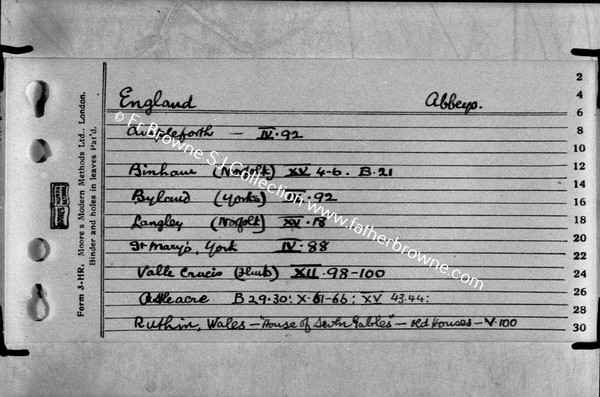 England Abbeys.
Ampleforth — IV. 92
Binham (Norfolk) XV 4-6. B. 21
Byland (Yorks) IV. 92
Langley (Norfolk) XV. 18
St Mary's, York IV. 88
Valle Crucis XII. 98-100
Castleacre B 29.30: X. 61-66: XV 43.44:
Ruthin, Wales — "House of Seven Gables" — old Houses — V. 100
Form 3-HR. Moore's Modern Methods Ltd., London.
Binder and holes in leaves Pat'd.
2
4
6
8
10
12
14
16
18
20
22
24
26
28
30
© Fr Browne S.J. Collection www.fatherbrowne.com